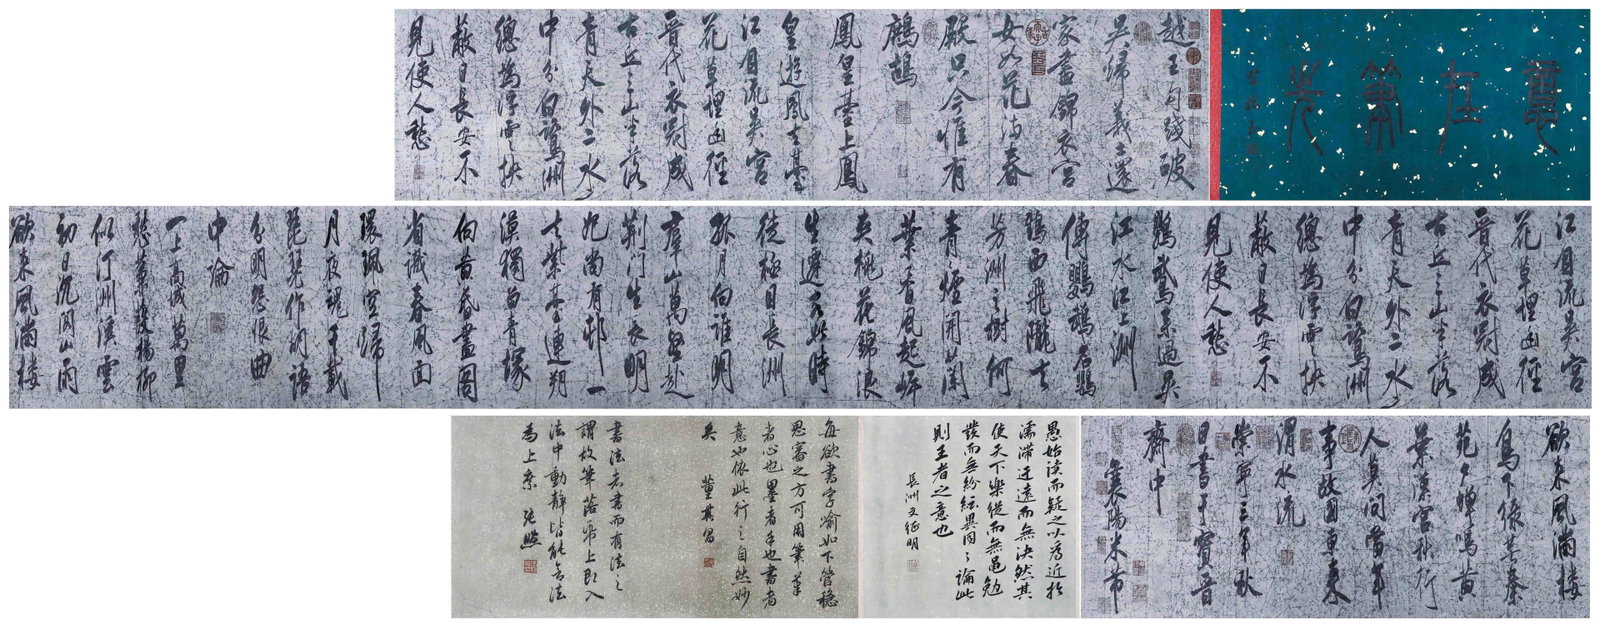 越王勾踐破
吳歸義士還
家盡錦衣宮
女如花滿春
殿只今惟有
鷓鴣
鳳皇臺上鳳
皇遊鳳去臺
江自流吳宮
花草埋幽徑
晉代衣冠成
古丘三山半落
青天外二水
中分白鷺洲
總為浮雲
蔽日長安不
見使人愁
江自流吳宮
花草埋幽徑
晉代衣冠成
古丘三山半落
青天外二水
中分白鷺洲
總為浮雲
蔽日長安不
見使人愁
鸚鵡來過吳
江水江上洲
傳鸚鵡名鸚
鵡西飛隴去
芳洲之樹何
青煙開蘭
葉香風起岸
夾桃花錦浪
生遷客此時
徒極目長洲
孤月向誰明
羣山萬壑赴
荊門生長明
妃尚有邨一
去紫臺連朔
漠獨留青塚
向黃昏畫圖
省識春風面
環珮空歸
月夜魂千載
琵琶作胡語
分明怨恨曲
中論
一上高城萬里
愁蒹葭楊柳
似汀洲溪雲
初日沉閣山雨
欲來風滿樓
欲來風滿樓
鳥下綠蕪秦
苑夕蟬鳴黃
葉漢宮秋行
人莫問當年
事故國東來
渭水流
崇寧三年秋
日書于寶晉
齋中
襄陽米芾
愚始读而疑之以為近於
濡滯迂遠而無決然其
使天下樂從而無黽勉
發而無紛紜異同之論此
則王者之意也
長洲文征明
每欲書字喻如下管穩
思審之方可用筆筆
者心也墨者手也書者
意也依此行之自然妙
矣
董其昌
書法者書而有法之
謂故筆落紙上即入
法中動靜皆能含法
為上乘 張照